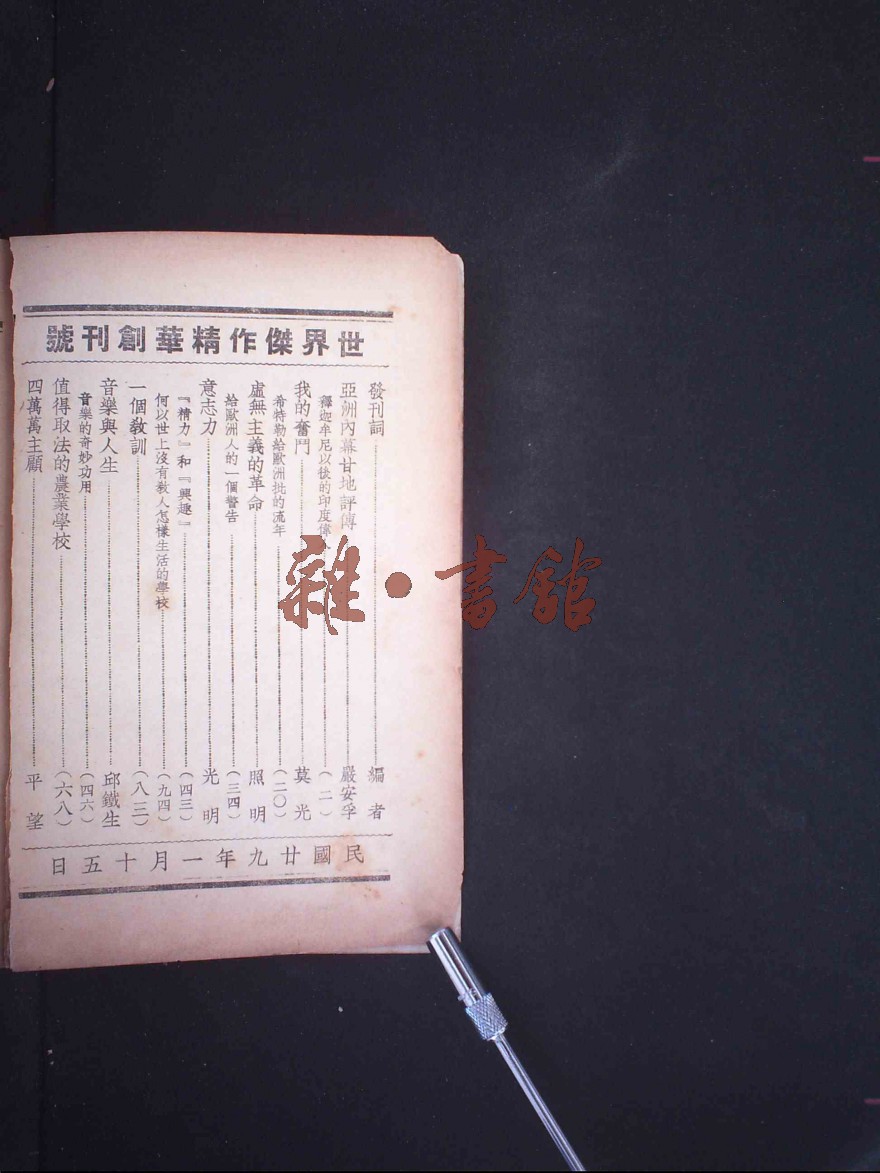 世界傑作精華創刊號
發刊詞 編者
亞洲內幕甘地評傳 嚴安孚
釋迦牟尼以後的印度偉人 (二)
我的奮鬥 莫光
希特勒給歐洲批的流年 (二〇)
虛無主義的革命 照明
給歐洲人的一個警告 (三四)
意志力 光明
『精力』和『興趣』 (四三)
何以世上沒有教人怎樣生活的學校 (九四)
一個教訓 (八三)
音樂與人生 邱鐵生
音樂的奇妙功用 (四六)
值得取法的農業學校 (六八)
四萬萬主顧 平望
民國廿九年一月十五日
雜·書館